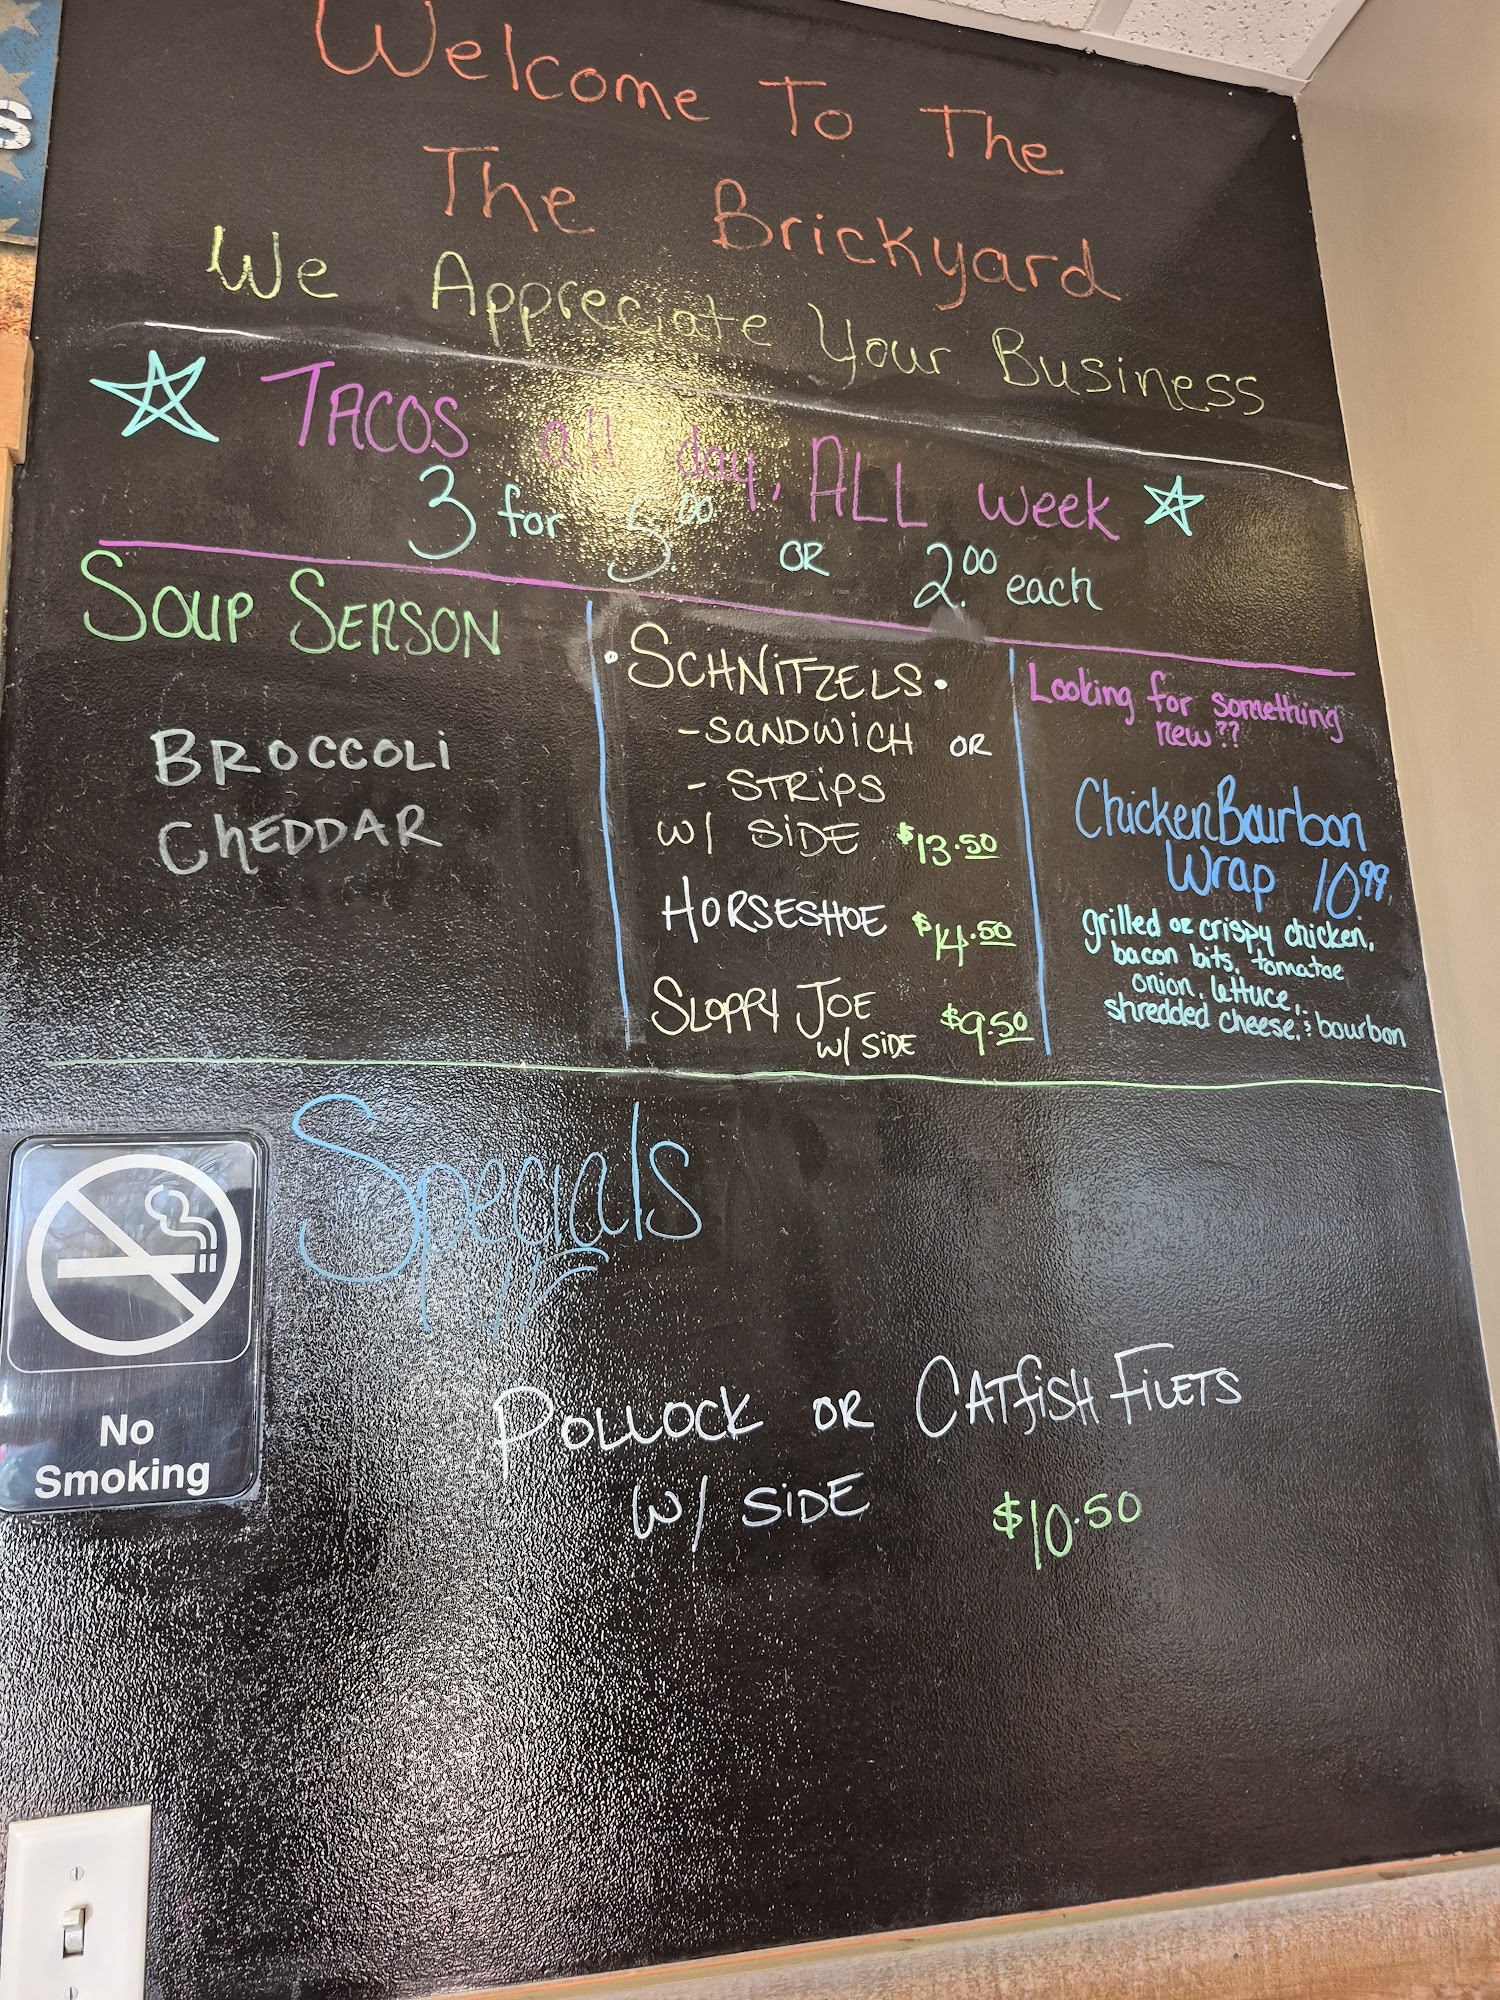 S
Welcome To The
The Brickyard
We Appreciate Your Business
TACOS all day, ALL week
3 for 5.00 OR 2.00 each
SOUP SEASON
BROCCOLI
ChEDDAR
• SCHNiTZELS •
- SANDWiCH OR
- STRiPS
W/ SiDE $13.50
HORSESHOE $14.50
SLOPPY JOE $9.50
W/ SiDE
Looking for something
new??
Chicken Bourbon
Wrap 10.99
grilled or crispy chicken,
bacon bits, tomatoe
onion, lettuce,
shredded cheese, & bourbon
Specials
POLLOCK OR CATfiSH FiLETS
W/ SiDE $10.50
No
Smoking